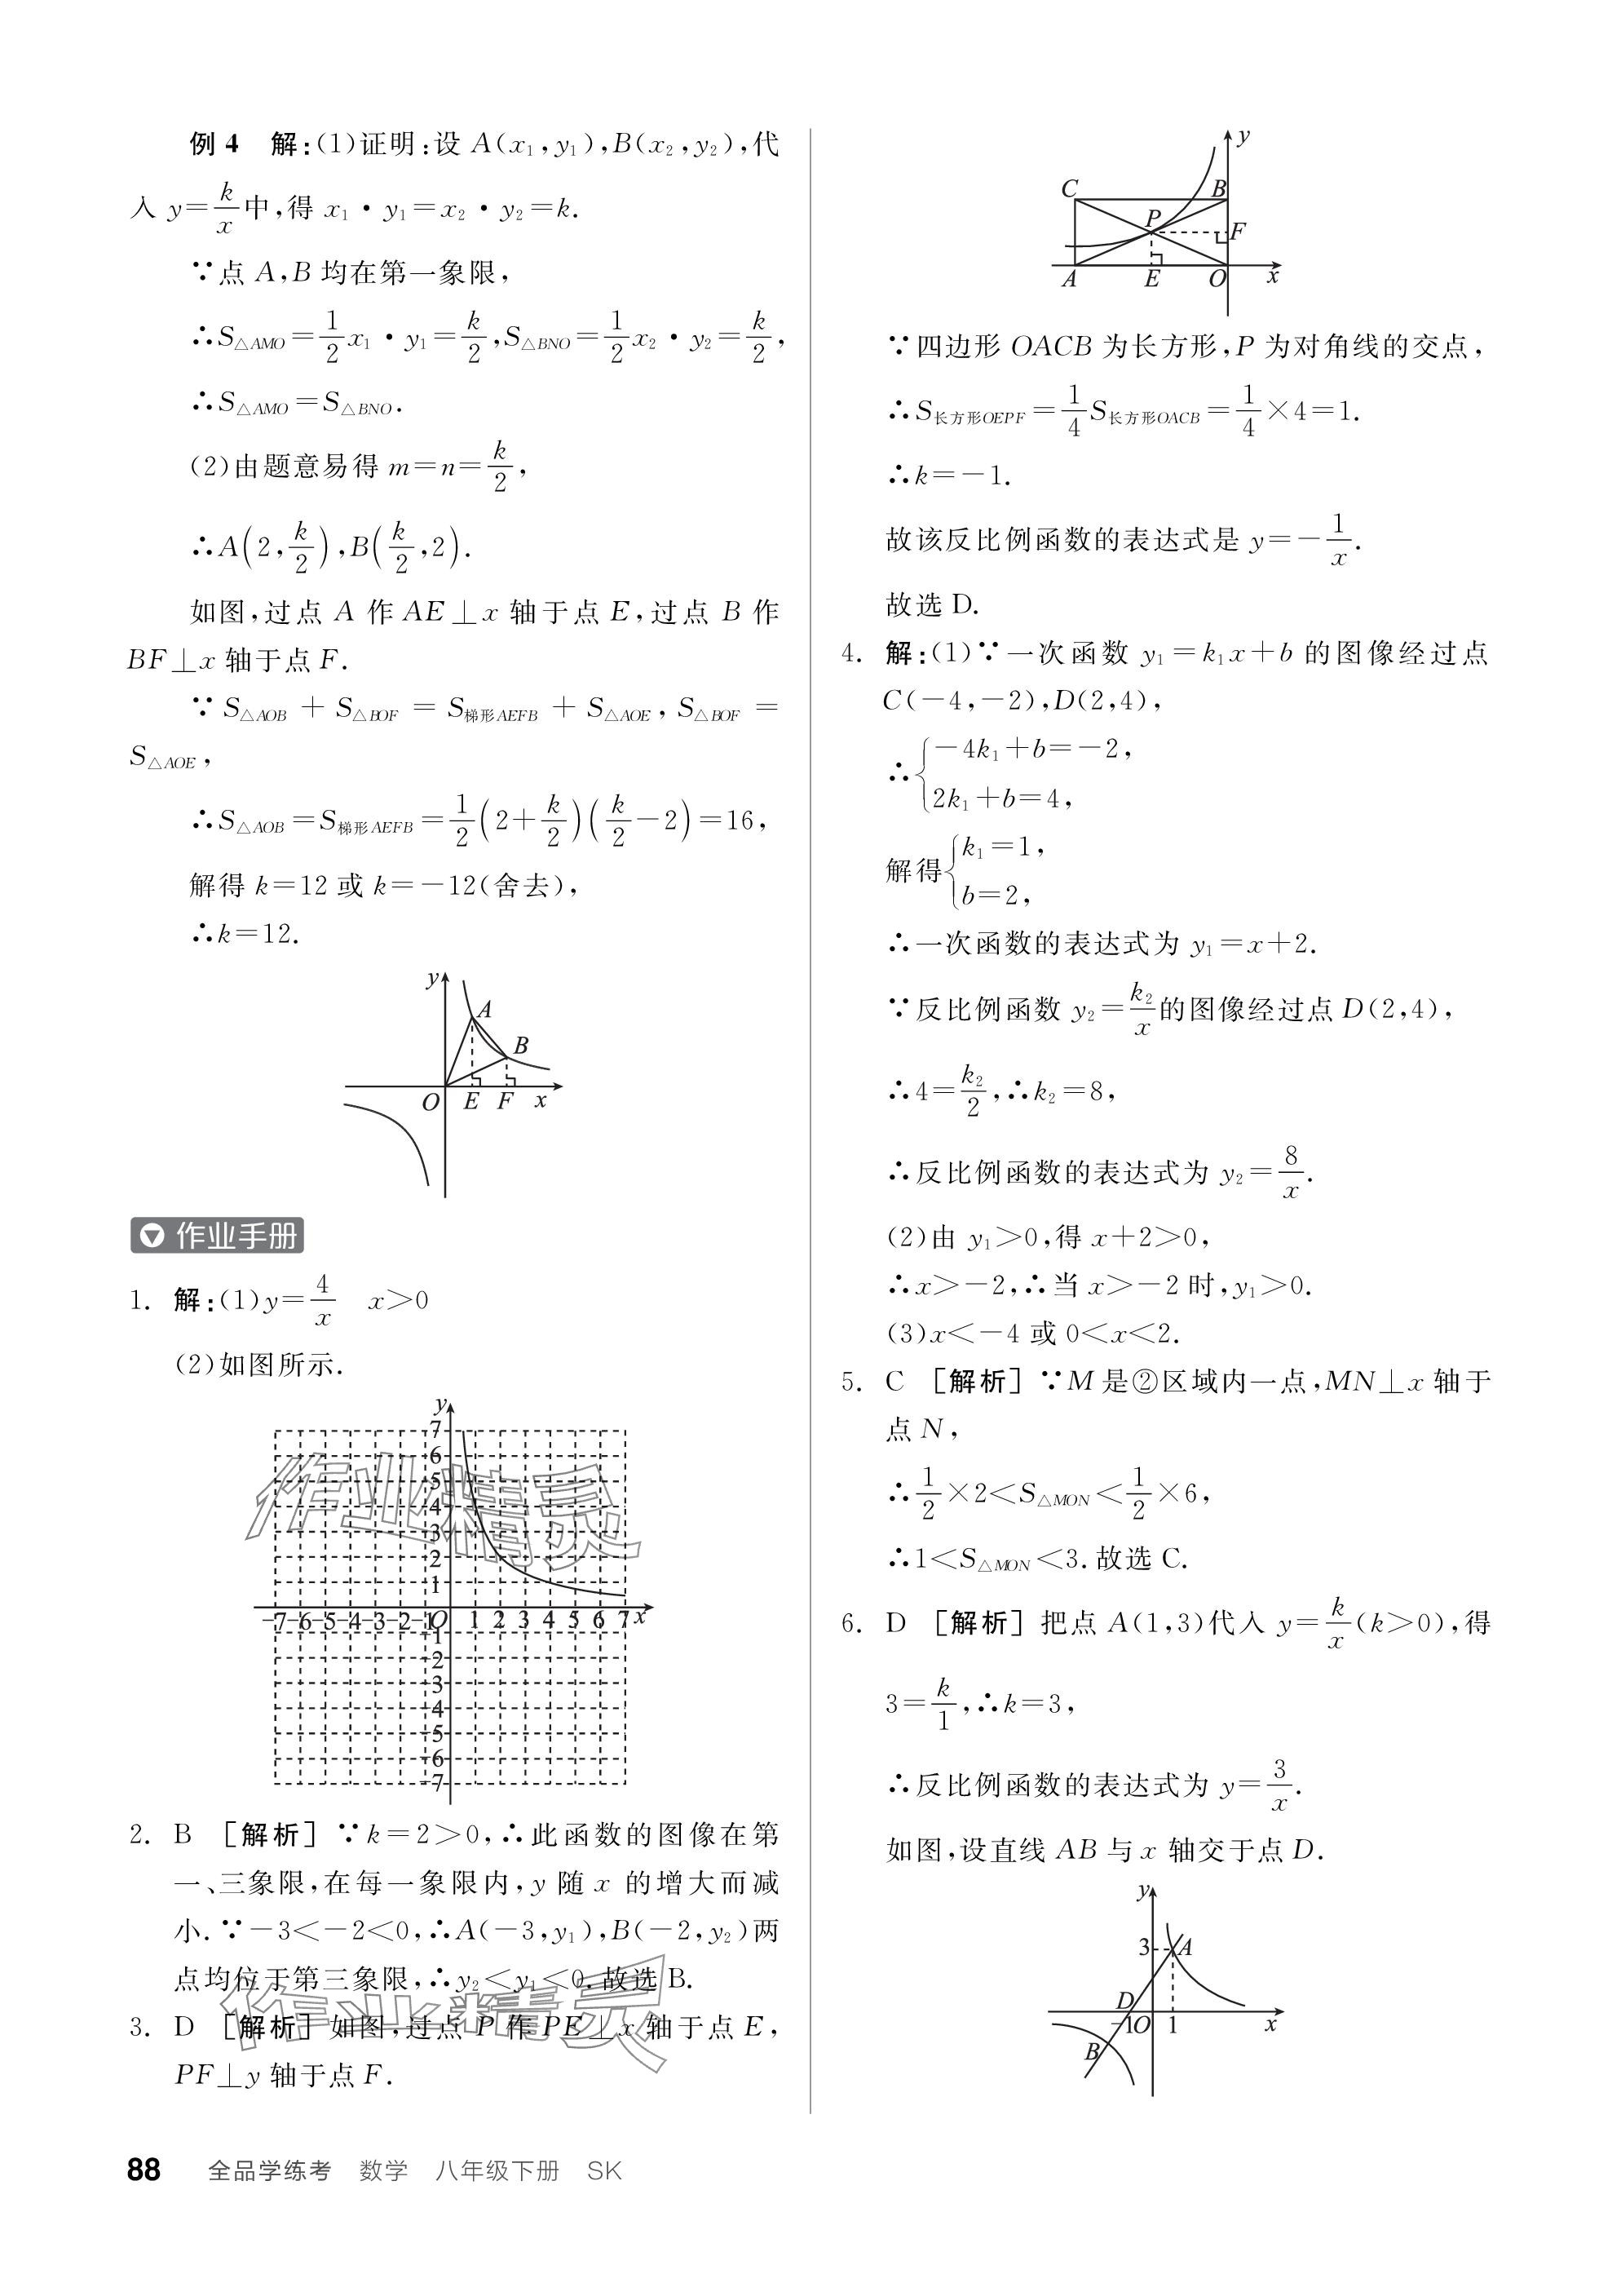 例4 解:(1)证明:设 A(x₁,y₁),B(x₂,y₂),代
入 y=k/x中,得 x₁·y₁=x₂·y₂=k.
∵点 A,B 均在第一象限,
∴S△AMO=1/2x₁·y₁=k/2,S△BNO=1/2x₂·y₂=k/2,
∴S△AMO=S△BNO.
(2)由题意易得 m=n=k/2,
∴A(2,k/2),B(k/2,2).
如图,过点 A 作 AE⊥x 轴于点 E,过点 B 作
BF⊥x 轴于点 F.
∵ S△AOB + S△BOF = S梯形AEFB + S△AOE, S△BOF =
S△AOE,
∴S△AOB=S梯形AEFB=1/2(2+k/2)(k/2-2)=16,
解得 k=12 或 k=-12(舍去),
∴k=12.
y
A
B
O E F x
作业手册
1. 解:(1)y=4/x x>0
(2)如图所示.
y
7
6
5
4
3
2
1
-7-6-5-4-3-2-1O 1 2 3 4 5 6 7 x
-1
-2
-3
-4
-5
-6
-7
作业精灵
2. B [解析] ∵k=2>0,∴此函数的图像在第
一、三象限,在每一象限内,y 随 x 的增大而减
小.∵-3<-2<0,∴A(-3,y₁),B(-2,y₂)两
点均位于第三象限,∴y₂<y₁<0.故选 B.
3. D [解析] 如图,过点 P 作 PE⊥x 轴于点 E,
PF⊥y 轴于点 F.
作业精灵
y
C B
P
F
A E O x
∵四边形 OACB 为长方形,P 为对角线的交点,
∴S长方形OEPF=1/4S长方形OACB=1/4×4=1.
∴k=-1.
故该反比例函数的表达式是 y=-1/x.
故选 D.
4. 解:(1)∵一次函数 y₁=k₁x+b 的图像经过点
C(-4,-2),D(2,4),
∴{-4k₁+b=-2,
2k₁+b=4,
解得{k₁=1,
b=2,
∴一次函数的表达式为 y₁=x+2.
∵反比例函数 y₂=k₂/x的图像经过点 D(2,4),
∴4=k₂/2,∴k₂=8,
∴反比例函数的表达式为 y₂=8/x.
(2)由 y₁>0,得 x+2>0,
∴x>-2,∴当 x>-2 时,y₁>0.
(3)x<-4 或 0<x<2.
5. C [解析] ∵M 是②区域内一点,MN⊥x 轴于
点 N,
∴1/2×2<S△MON<1/2×6,
∴1<S△MON<3.故选 C.
6. D [解析] 把点 A(1,3)代入 y=k/x(k>0),得
3=k/1,∴k=3,
∴反比例函数的表达式为 y=3/x.
如图,设直线 AB 与 x 轴交于点 D.
y
3 A
D
-1O 1 x
B
88 全品学练考 数学 八年级下册 SK